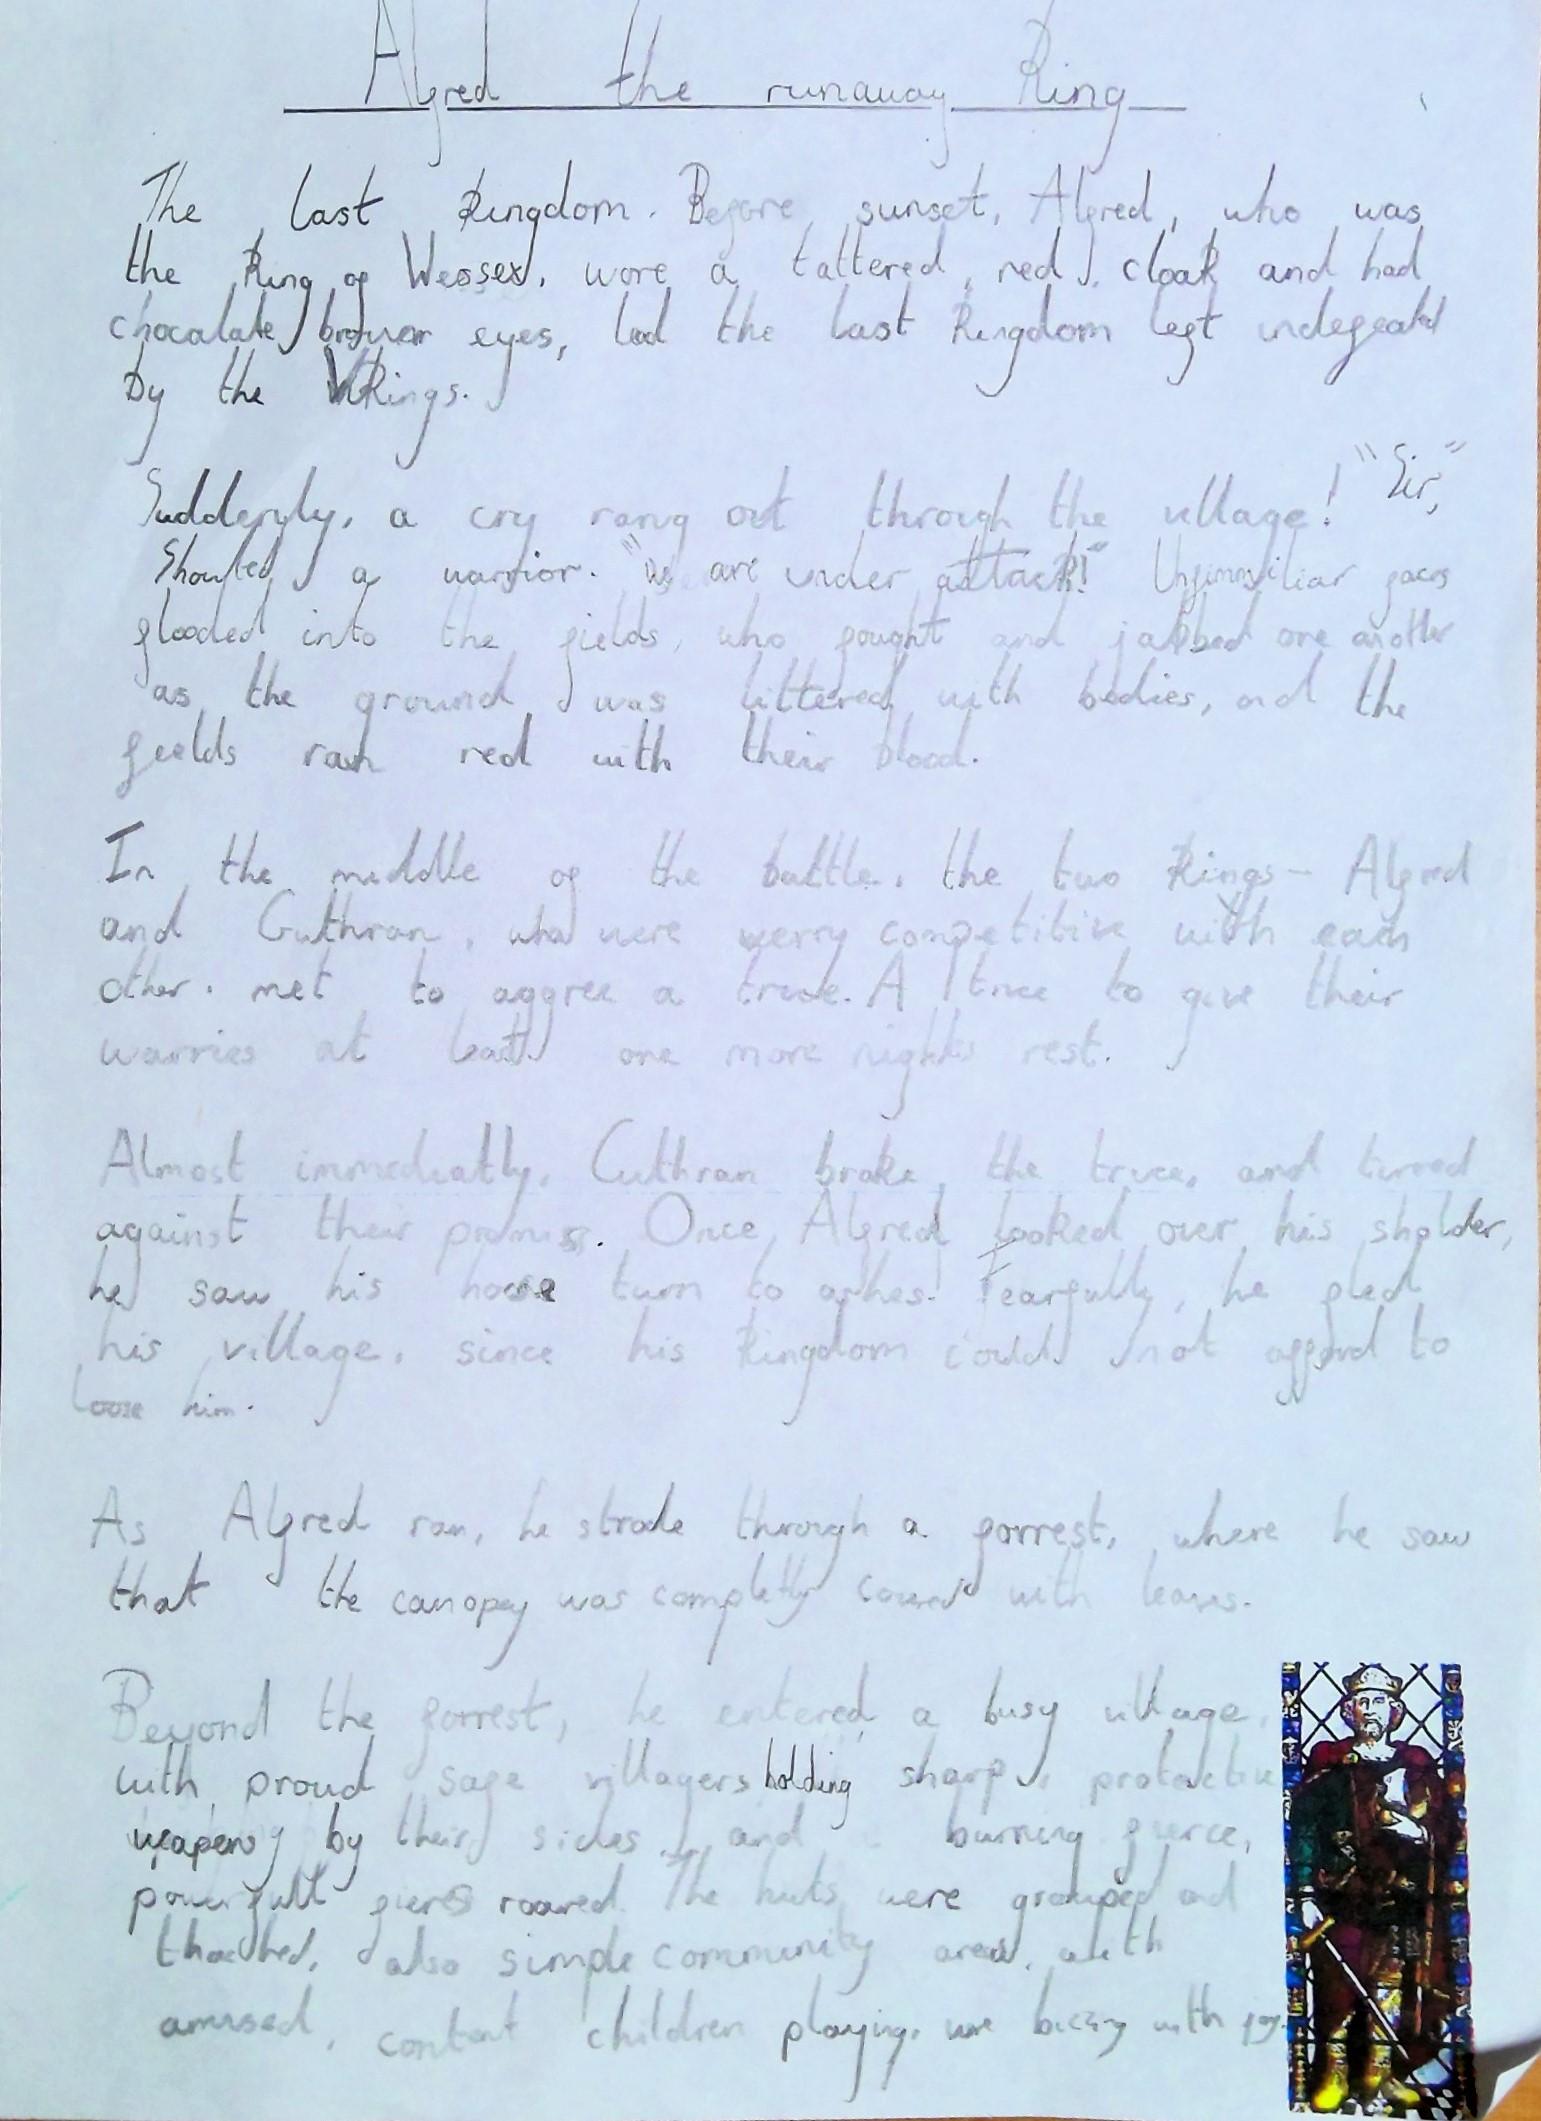 Alfred the runaway King
The last kingdom. Before sunset, Alfred, who was
the King of Wessex, wore a tattered, red, cloak and had
chocalate brown eyes, led the last kingdom left undefeated
by the Vikings.
Suddenyly, a cry rang out through the village! "Sir,"
Shouted a warrior. "We are under attack!" Unfimmiliar faces
flooded into the fields, who fought and jabbed one another
as the ground was littered with bodies, and the
fields ran red with their blood.
In the middle of the battle, the two kings - Alfred
and Guthran, who were verry competitive with each
other. met to aggree a truce. A truce to give their
warries at least one more nights rest.
Almost immediatly, Guthran brake the truce, and turned
against their promiss. Once Alfred looked over his sholder,
he saw his house turn to ashes. Fearfully, he fled
his village, since his kingdom could not afford to
loose him.
As Alfred ran, he strode through a forrest, where he saw
that the canopey was completly covered with leaves.
Beyond the forrest, he entered a busy village,
with proud safe villagers holding sharp, protective
weapens by their sides, and burning fierce,
powerfull fieres roared. The huts were grouped and
thatched, also simple community areas, with
amused, content children playing, were buzzing with joy.